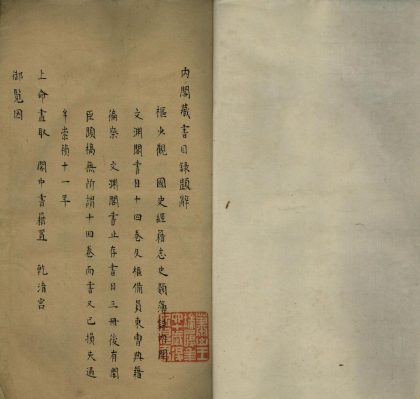 內閣藏書目錄題解
樞少觀 國史經籍志史類簿錄內閣
文淵閣書目十四卷及樞備員東曹典籍
備察 文淵閣書止存書目三冊後有閣
臣題稿無所謂十四卷而書又已損失過
半崇禎十一年
上命盡取 閣中書籍置 乾清宮
御覽因